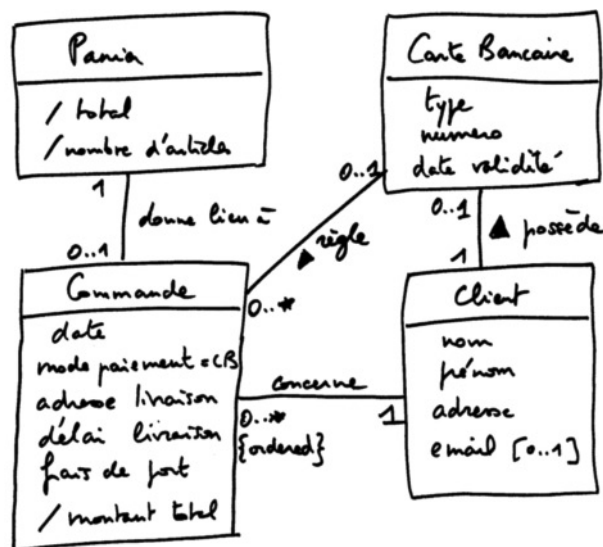 Panier
/ total
/ nombre d'articles
Carte Bancaire
type
numero
date validité
1
donne lieu à
0..1
0..1
▲ règle
0..*
0..1
▲ possède
1
Commande
date
mode paiement = CB
adresse livraison
délai livraison
frais de port
/ montant total
concerne
0..*
{ordered}
1
Client
nom
prénom
adresse
email [0..1]